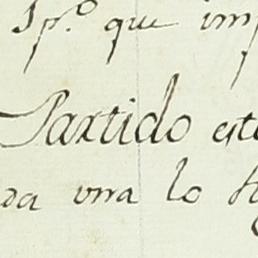 Ip.º que imp
Partido este
da una lo